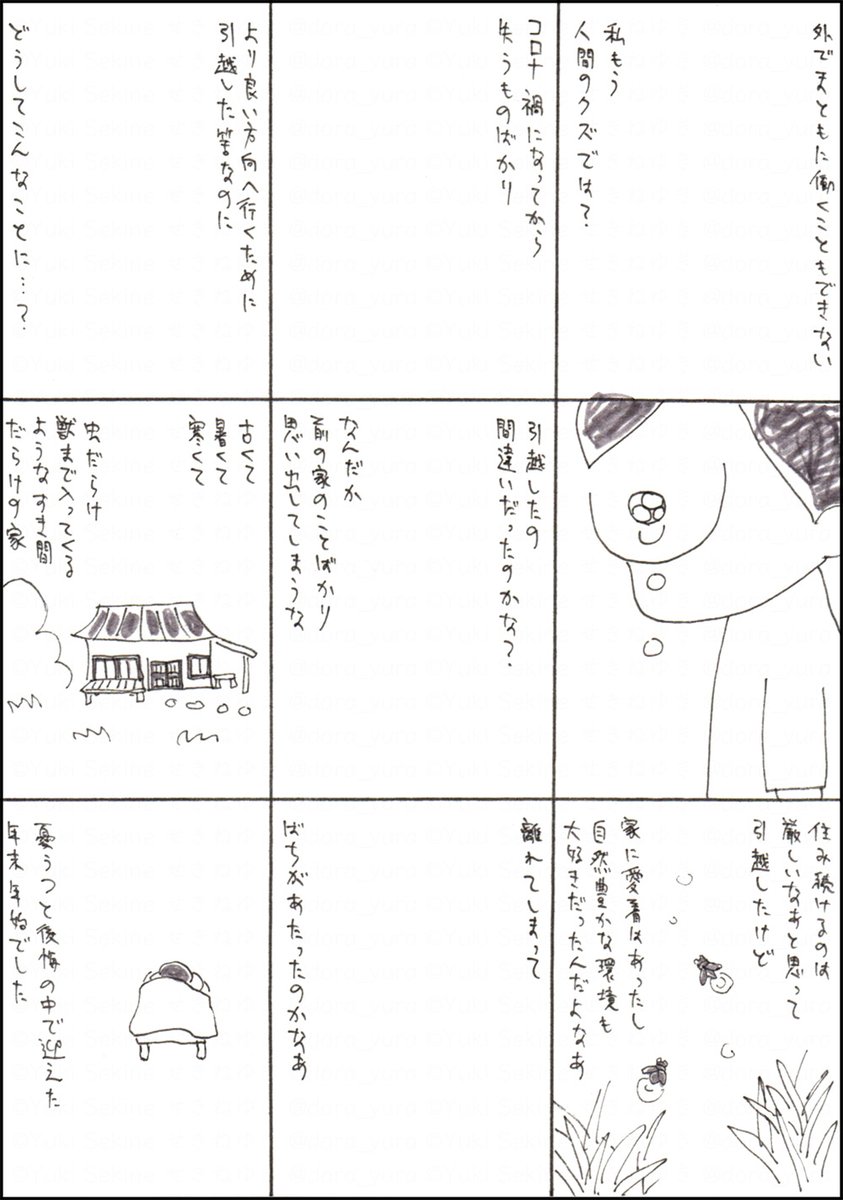 外でまともに働くこともできない
私もう
人間のクズでは？
コロナ禍になってから
失うものばかり
より良い方向へ行くために
引越した筈なのに
どうしてこんなことに…？
引越したの
間違いだったのかな？
なんだか
前の家のことばかり
思い出してしまうな
古くて
暑くて
寒くて
虫だらけ
獣まで入ってくる
ようなすき間
だらけの家
住み続けるのは
厳しいなあと思って
引越したけど
家に愛着はあったし
自然豊かな環境も
大好きだったんだよなあ
離れてしまって
ばちがあたったのかなあ
憂うつと後悔の中で迎えた
年末年始でした